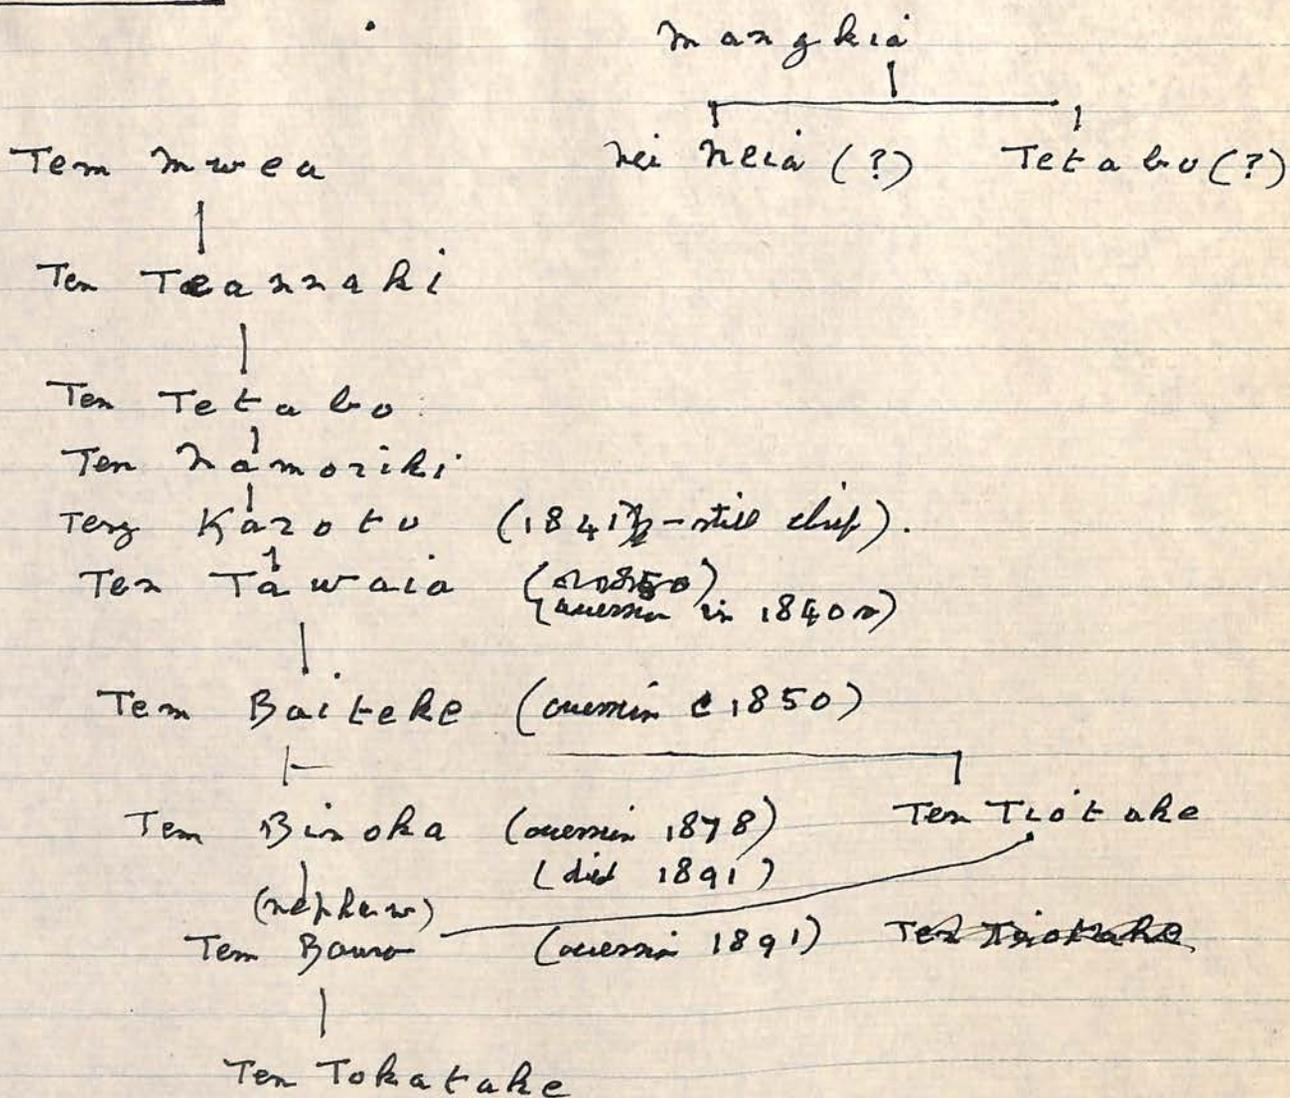 Mangkia
Tem Mwea Nei Neia (?) Tetabo (?)
Ten Teannaki
Ten Tetabo
Ten Namoriki
Teng Karotu (1841 - still chief).
Ten Tawaia
(accession in 1840s)
Tem Baiteke (accession c 1850)
Tem Binoka (accession 1878) Ten Tiotake
(died 1891)
(nephew)
Tem Bauro (accession 1891) Ten Tiotake
Ten Tokatake